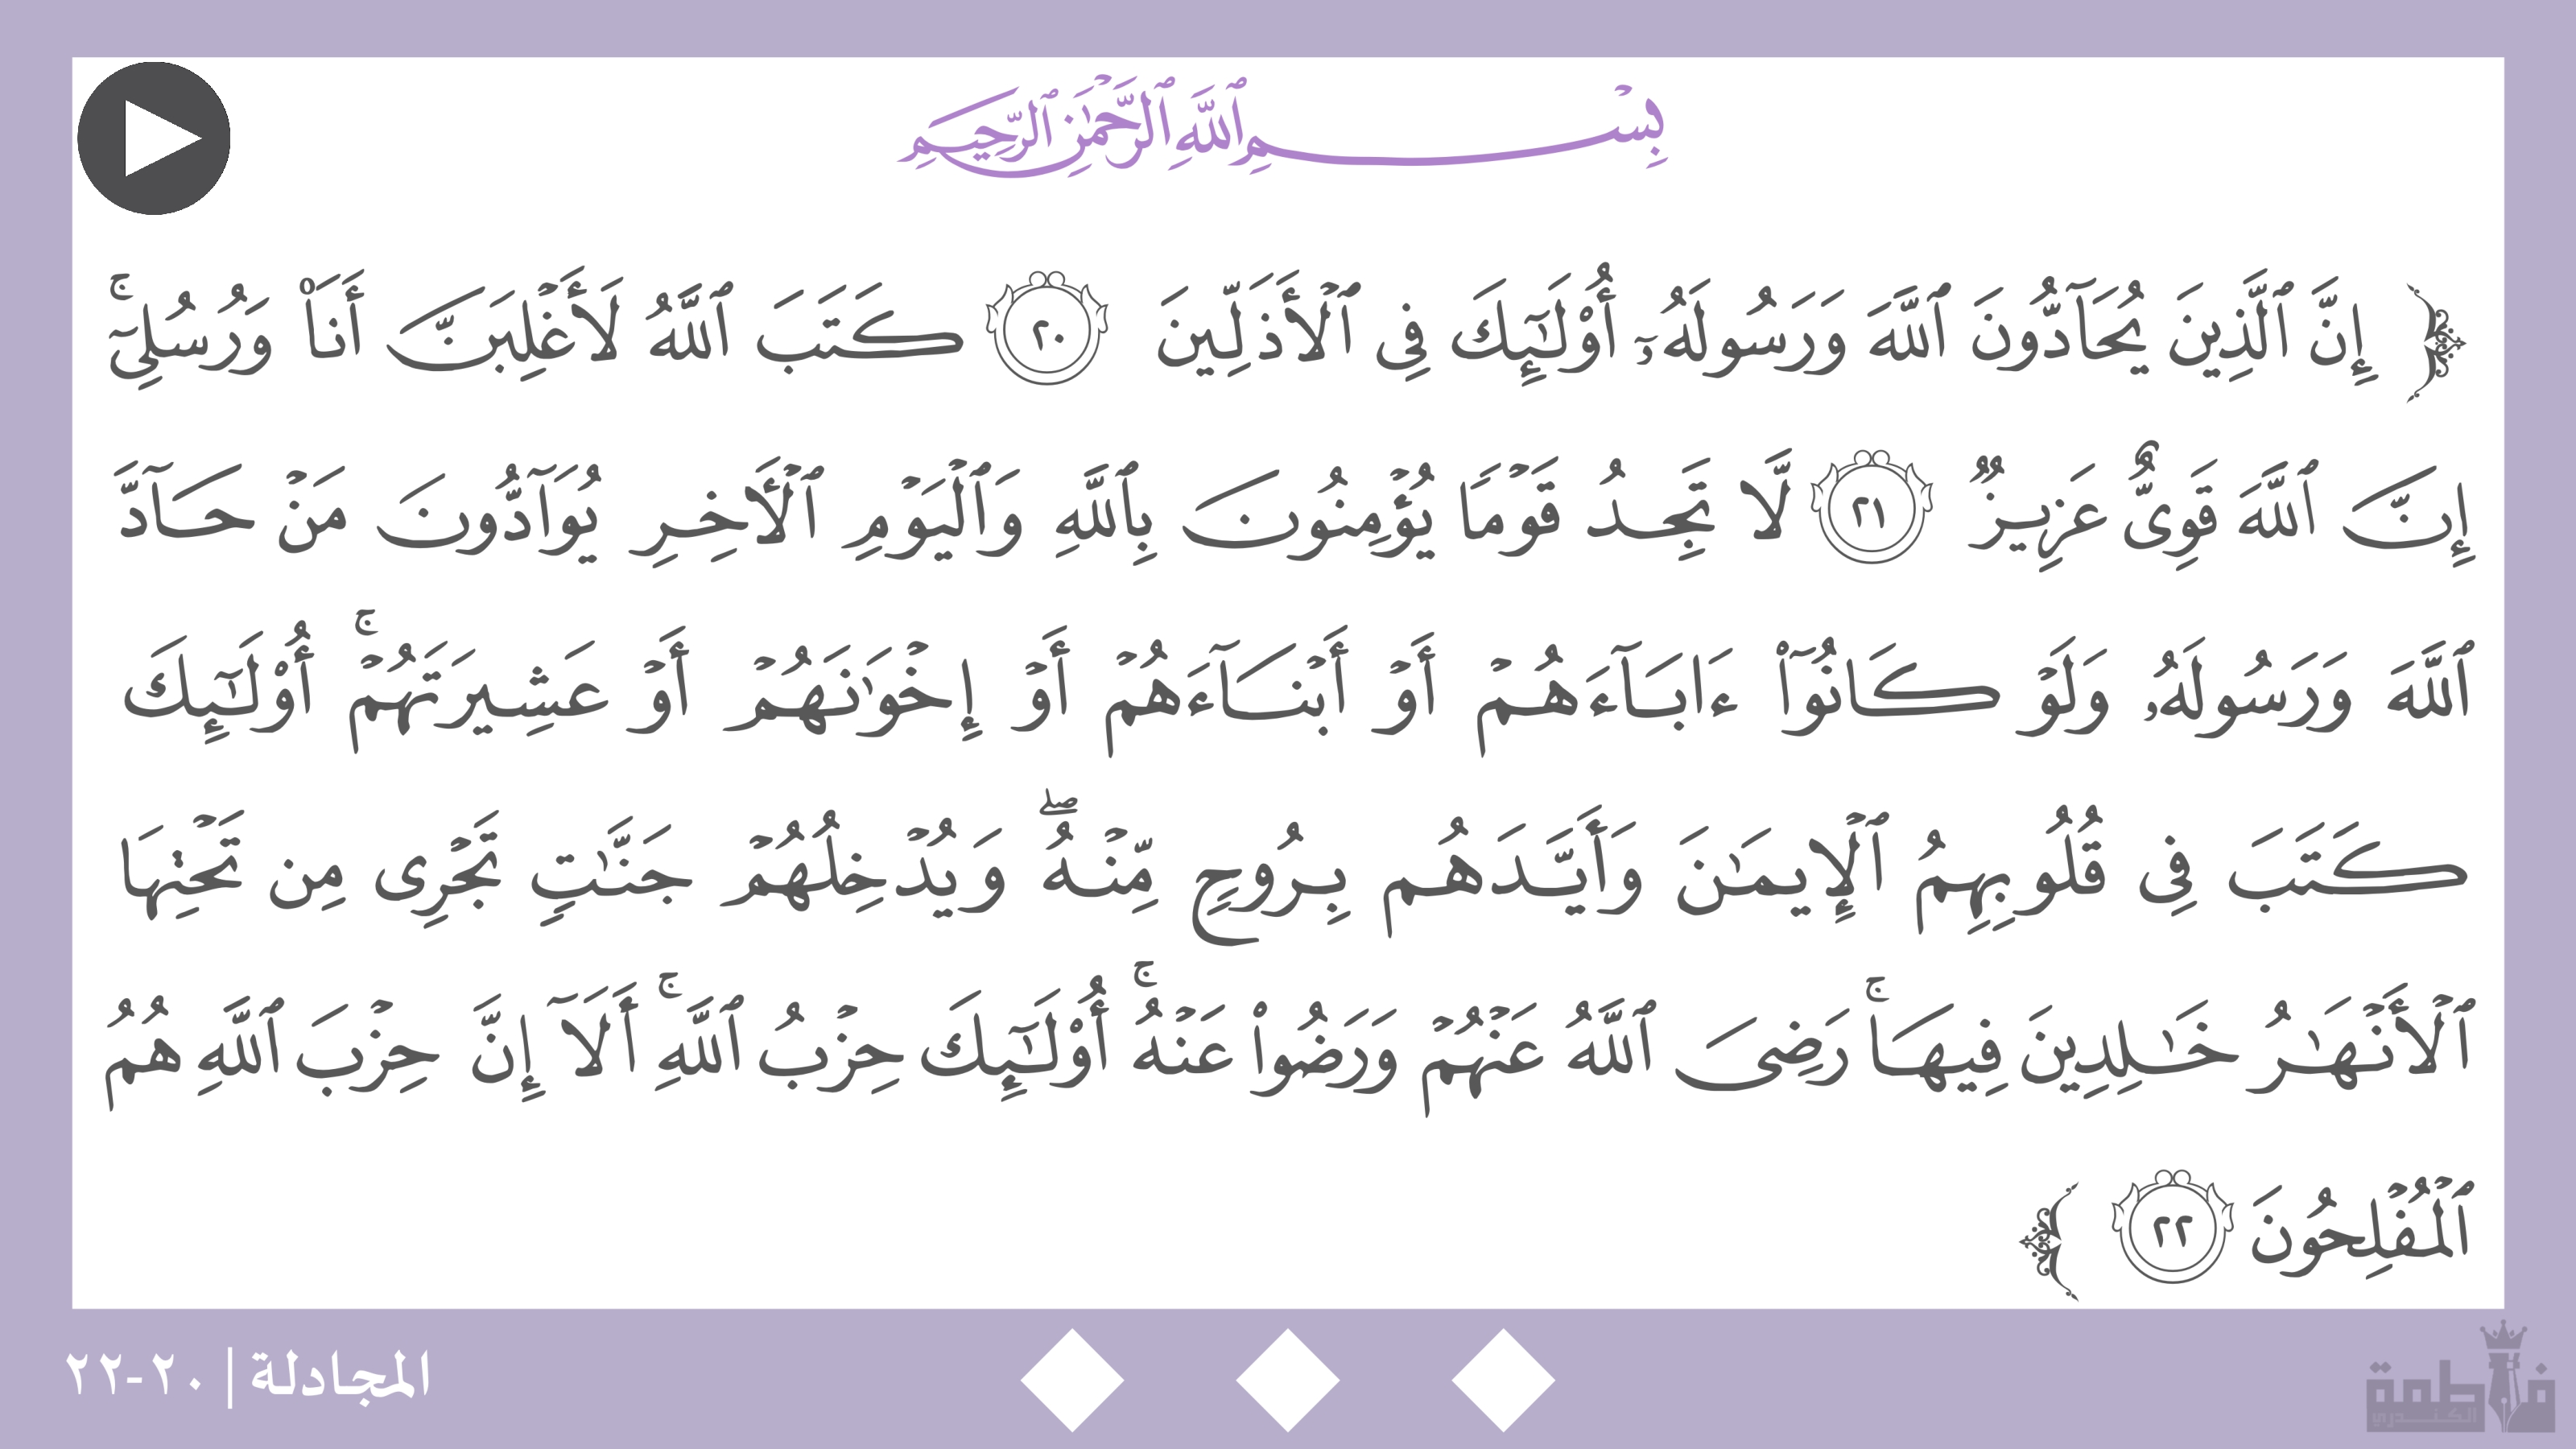 بِسْمِ ٱللَّهِ ٱلرَّحْمَٰنِ ٱلرَّحِيمِ
﴿ إِنَّ ٱلَّذِينَ يُحَآدُّونَ ٱللَّهَ وَرَسُولَهُۥٓ أُو۟لَٰٓئِكَ فِى ٱلْأَذَلِّينَ ٢٠ كَتَبَ ٱللَّهُ لَأَغْلِبَنَّ أَنَا۠ وَرُسُلِىٓ ۚ
إِنَّ ٱللَّهَ قَوِىٌّ عَزِيزٌ ٢١ لَّا تَجِدُ قَوْمًا يُؤْمِنُونَ بِٱللَّهِ وَٱلْيَوْمِ ٱلْـَٔاخِرِ يُوَآدُّونَ مَنْ حَآدَّ
ٱللَّهَ وَرَسُولَهُۥ وَلَوْ كَانُوٓا۟ ءَابَآءَهُمْ أَوْ أَبْنَآءَهُمْ أَوْ إِخْوَٰنَهُمْ أَوْ عَشِيرَتَهُمْ ۚ أُو۟لَٰٓئِكَ
كَتَبَ فِى قُلُوبِهِمُ ٱلْإِيمَٰنَ وَأَيَّدَهُم بِرُوحٍ مِّنْهُ ۖ وَيُدْخِلُهُمْ جَنَّٰتٍ تَجْرِى مِن تَحْتِهَا
ٱلْأَنْهَٰرُ خَٰلِدِينَ فِيهَا ۚ رَضِىَ ٱللَّهُ عَنْهُمْ وَرَضُوا۟ عَنْهُ ۚ أُو۟لَٰٓئِكَ حِزْبُ ٱللَّهِ ۚ أَلَآ إِنَّ حِزْبَ ٱللَّهِ هُمُ
ٱلْمُفْلِحُونَ ٢٢ ﴾
المجادلة | ٢٠-٢٢
فاطمة
الكندري